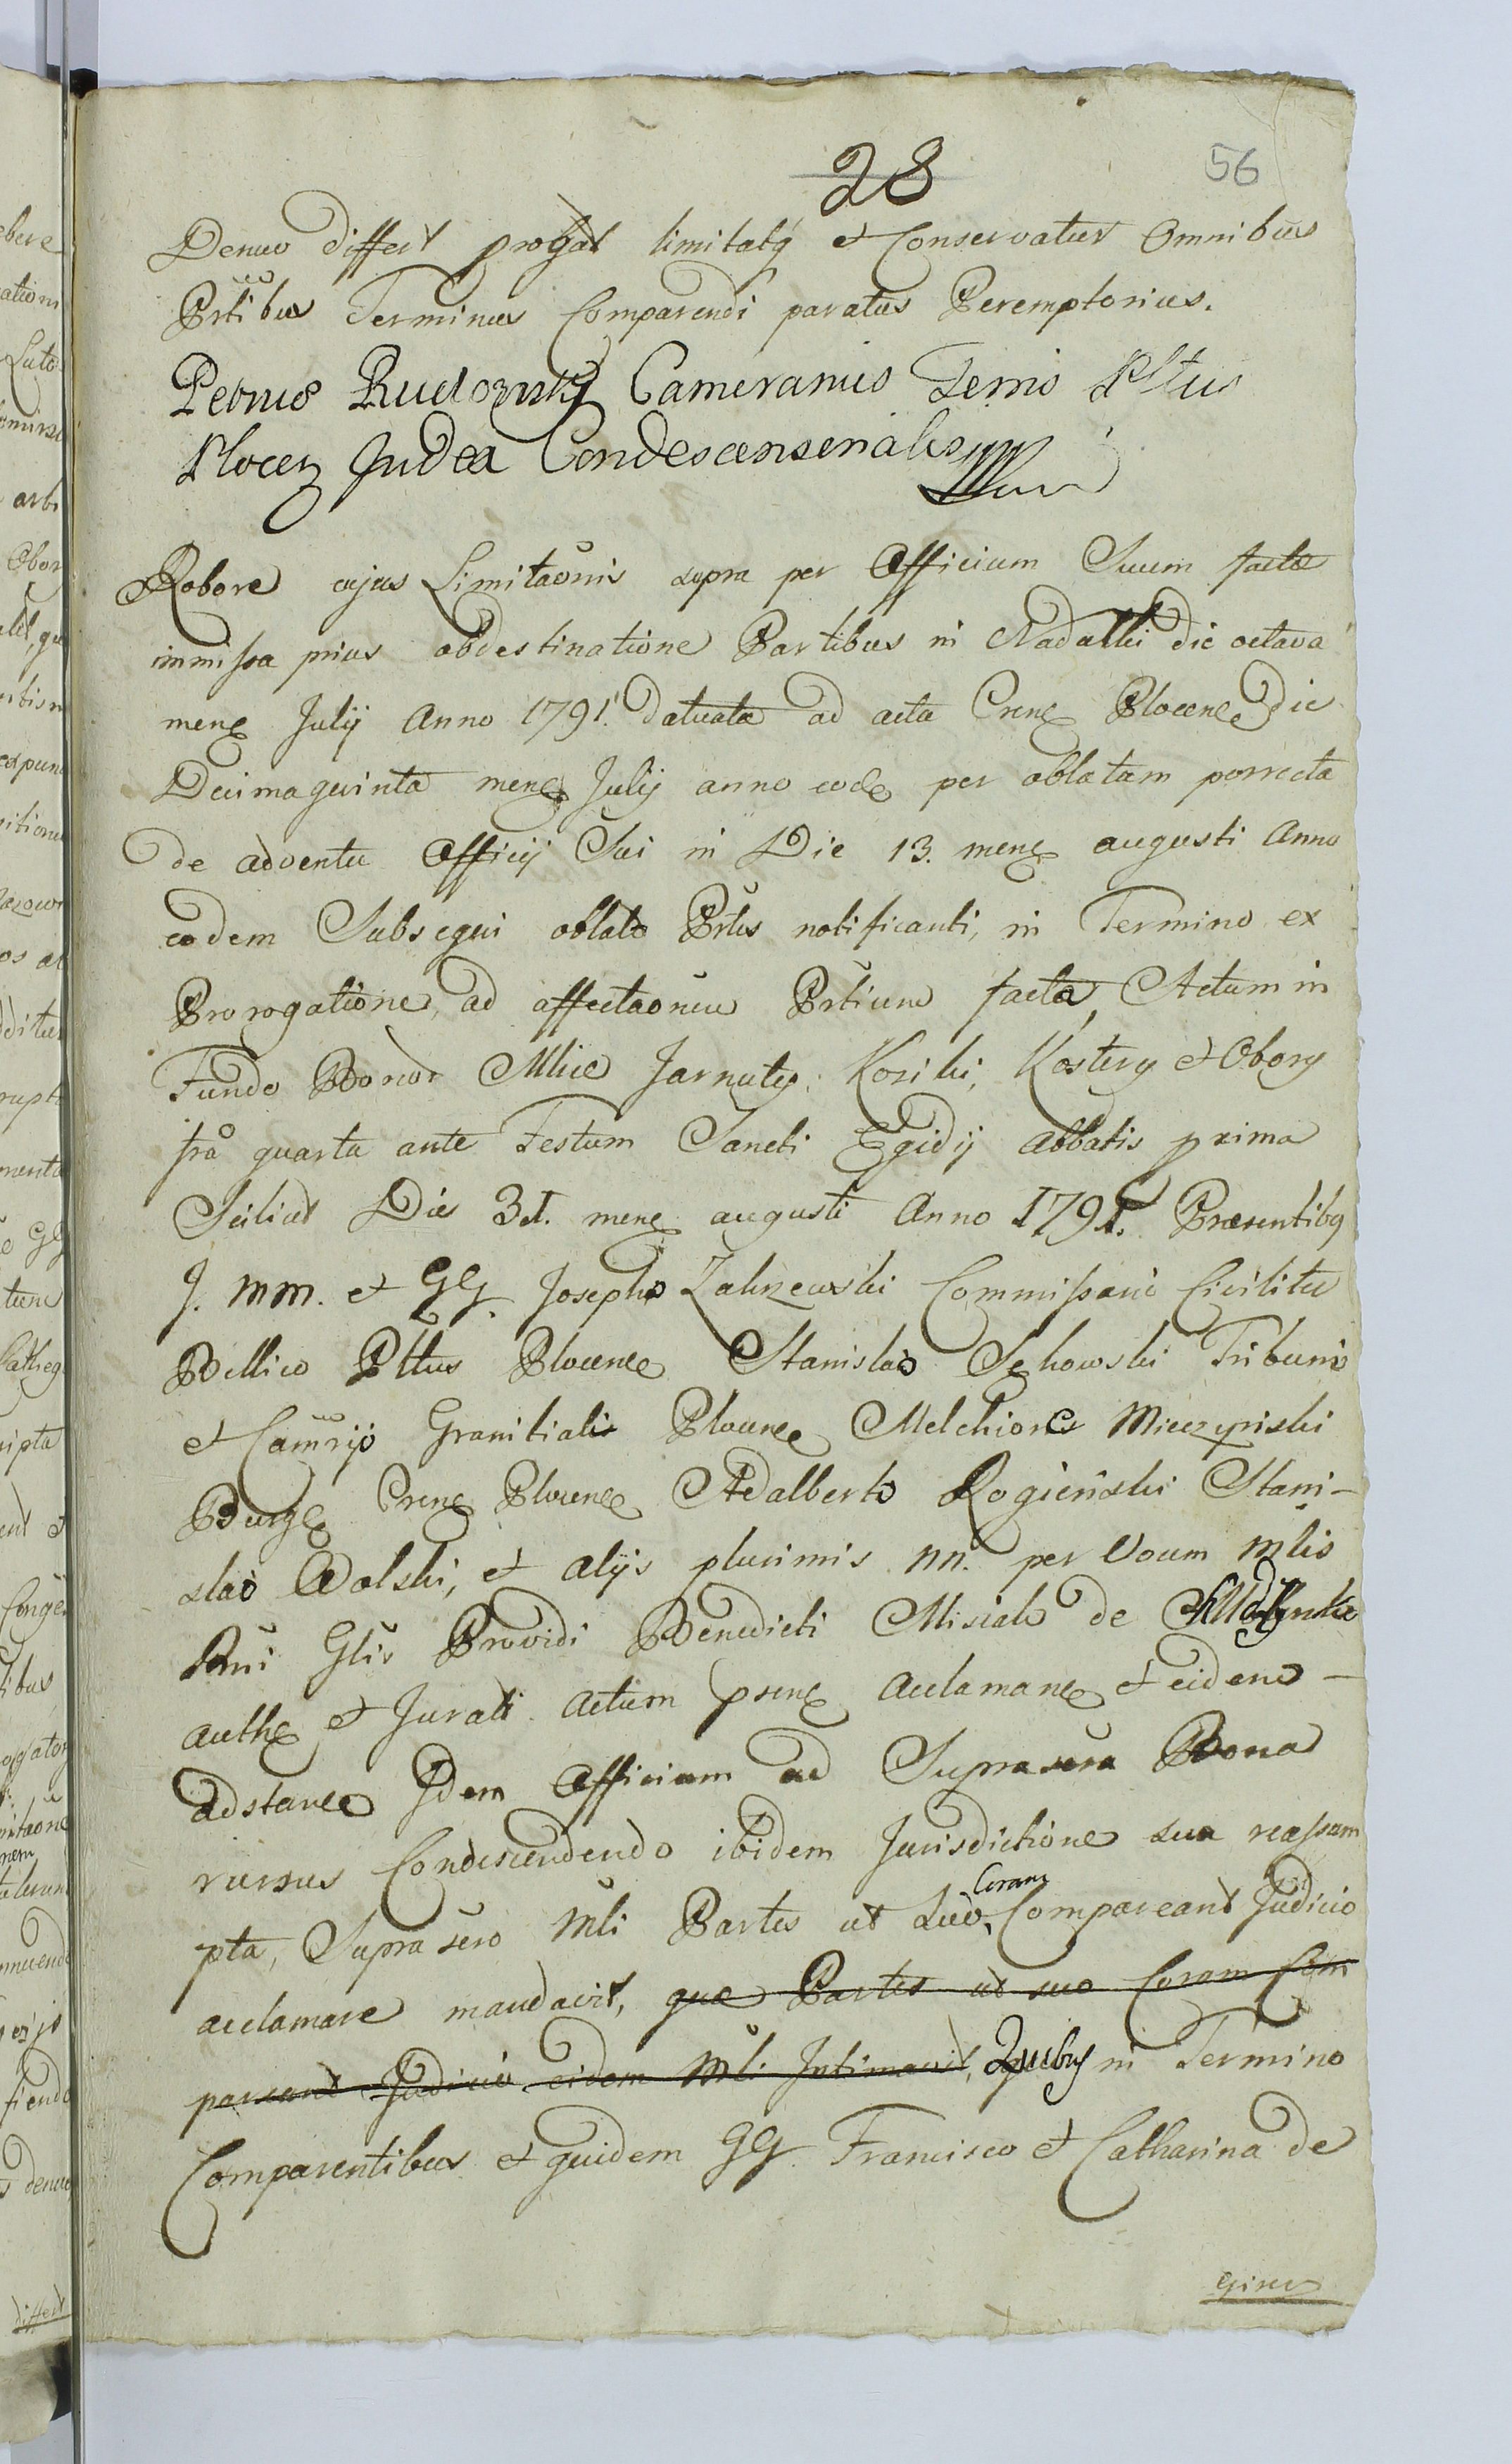 28
56
Denuo differt progat limitatq et Conservatur Omnibus
Prtibus Terminus Comparendi paratus Peremptorius.
Petrus Cameranius Terrio Pltus
Plocen Judex Condescensorialis
Robore cujus Limitaonis supra per Officium Suum facta
immissa prius obdestinatione Partibus in die octava
mens Julij Anno 1791. datuata ad acta Crens Plocens Die
Decimaquinta mens Julij anno eode per oblatam porrecta
de adventu Officij Sui in Die 13. mens augusti Anno
eodem Subsequi oblato Prtes notificanti, in Termino ex
Prorogatione, ad affectaonem Prtium facta, Actum in
Fundo Bonor Mlice Jarnuty, Kosiki, Kostery et Obory
fra quarta ante Festum Sancti Egidij abbatis prima
Scilicet Die 31. mens augusti Anno 1791. Praesentibq
J. mm. et GG. Josepho Zakrzewski Commissario Civilitu
Bellico Pltus Plocens Stanislao Sękowski Tribuno
et Camrijo Granitiali Plocens Melchiore Mieczyński
Burgs Crens Plocens Adalberto Rogieński Stani-
slao Wolski, et alijs plurimis nn. per Voum mlis
Rni Glis Providi Benedicti Misiak de
auths et Jurati. actum psens acclamans et eidem -
adstans Idem Officium ad Suprasera Bona
rursus Condescendendo ibidem Jurisdictione sua reassum
pta, Suprasero Mli Partes ut Suo, Coram Compareant Judicio
acclamare mandavit, quae Partes ut suo Coram Com
pareant Judicio eidem Mli Intimavit, Quibq in Termino
Comparentibus et quidem GG. Francisco et Catharina de